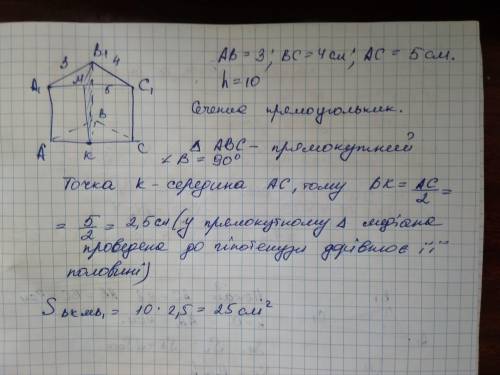 AB = 3; BC = 4 см; AC = 5 см.
h = 10
Сечение прямоугольник.
B₁
3 4
A₁ M 5 C₁
B
A K C
Δ ABC – прямокутний
∠ B = 90°
Точка K – середина AC, тому BK = AC/2 =
= 5/2 = 2,5 см (у прямокутному Δ медіана
проведена до гіпотенузи дорівнює її
половині)
S BKMB₁ = 10 · 2,5 = 25 см²